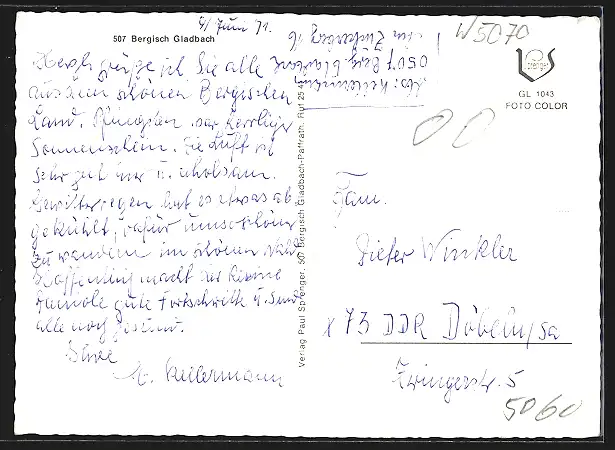 4/ Juni 71.
507 Bergisch Gladbach
Herzl. grüße ich Sie alle
aus dem schönen Bergischen
Land. Pfingsten war herrlicher
Sonnenschein. Die Luft ist
sehr gut hier u. erholsam.
Gewitterregen hat es etwas ab
gekühlt, dafür umso schöner
zu wandern im schönen Wald
Hoffentlich macht der kleine
gute Fortschritte u. sind
alle noch gesund.
Ihre
E. Kellermann
Abs: Kellermann
507 Berg. Gladbach
Verlag Paul Sprenger, 507 Bergisch Gladbach-Paffrath, Ruf 25 4
W5070
Sprenger
GL 1043
FOTO COLOR
00
Fam.
Dieter Winkler
x 73 DDR Döbeln/Sa
Zwingerstr. 5
5060